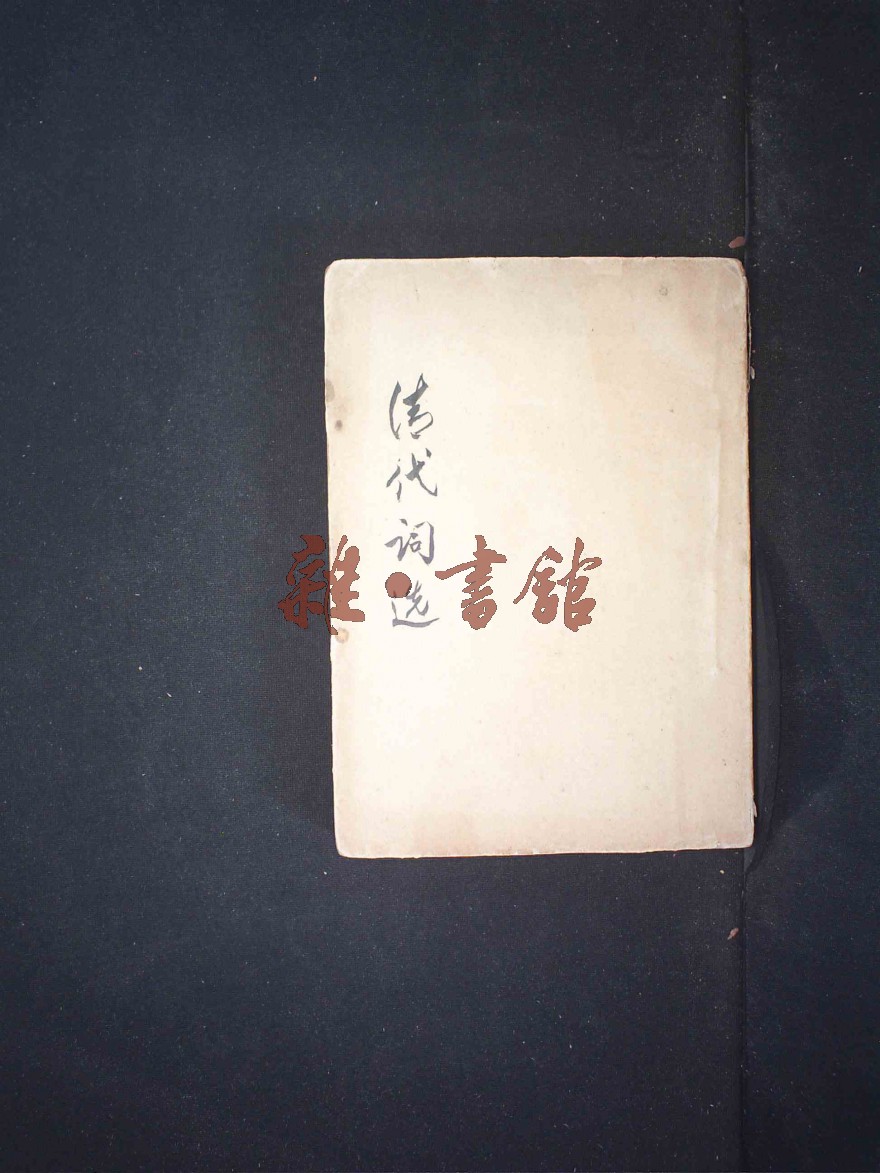 清代词选
雜·書館